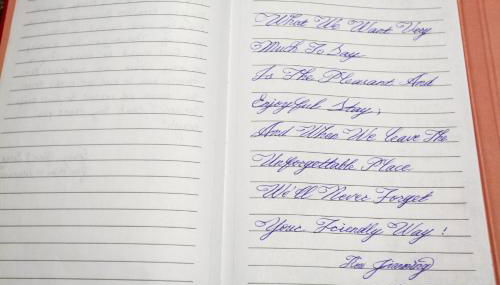 What We Want Very
Much To Say
Is The Pleasant And
Enjoyful Stay,
And When We Leave The
Unforgettable Place
We'll Never Forget
Your Friendly Way !